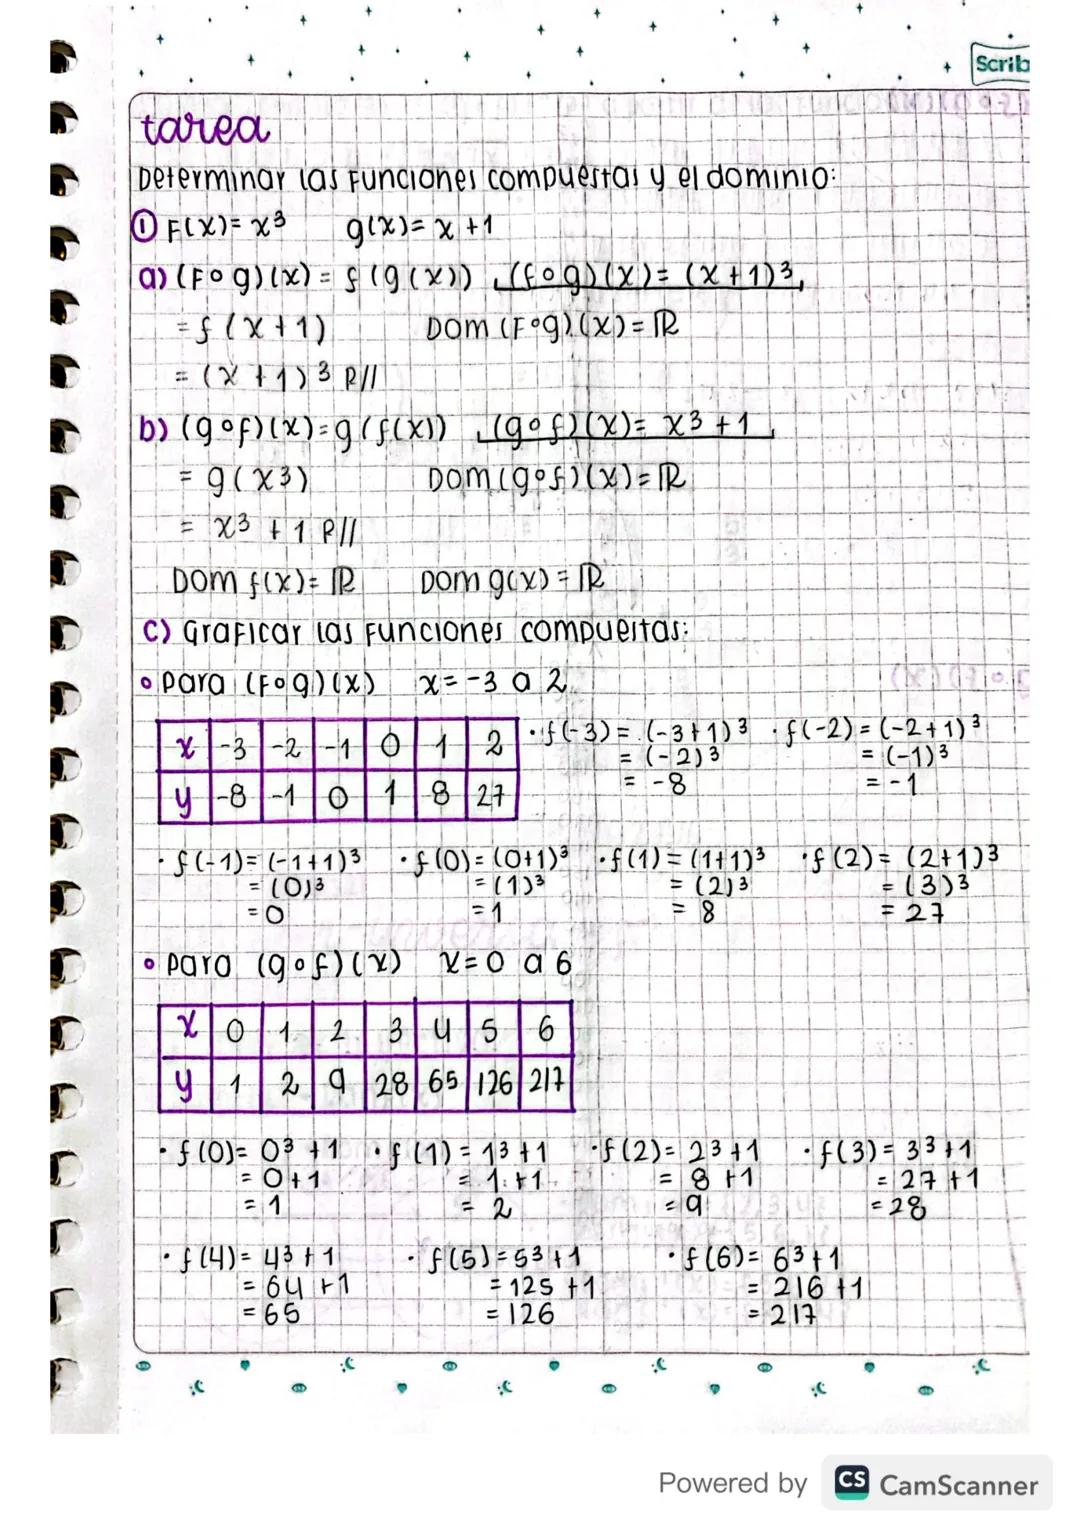 Scrib
tarea
Determinar las Funciones compuestas y el dominio:
① F(x)= x³ g(x)= x +1
a) (F∘g)(x) = f (g(x)) (f∘g)(x)= (x+1)³
= f (x+1) Dom (F∘g)(x)= ℝ
= (x+1)³ R//
b) (g∘f)(x)=g(f(x)) (g∘f)(x)= x³+1
= g(x³) Dom(g∘f)(x)=ℝ
= x³ + 1 R//
Dom f(x)= ℝ Dom g(x) = ℝ
c) Graficar las Funciones compuestas:
∘ para (F∘g)(x) x= -3 a 2
x -3 -2 -1 0 1 2
y -8 -1 0 1 8 27
· f(-3) = (-3+1)³ · f(-2) = (-2+1)³
= (-2)³ = (-1)³
= -8 = -1
· f(-1)= (-1+1)³ · f(0)= (0+1)³ · f(1) = (1+1)³ · f(2)= (2+1)³
= (0)³ = (1)³ = (2)³ = (3)³
= 0 = 1 = 8 = 27
∘ para (g∘f)(x) x=0 a 6
x 0 1 2 3 4 5 6
y 1 2 9 28 65 126 217
· f(0)= 0³ +1 · f(1) = 1³ +1 · f(2)= 2³+1 · f(3)= 3³+1
= 0+1 = 1+1 = 8 +1 = 27 +1
= 1 = 2 = 9 = 28
· f(4)= 4³ + 1 · f(5)=5³+1 · f(6)= 6³+1
= 64 +1 = 125 +1 = 216 +1
= 65 = 126 = 217
Powered by CS CamScanner